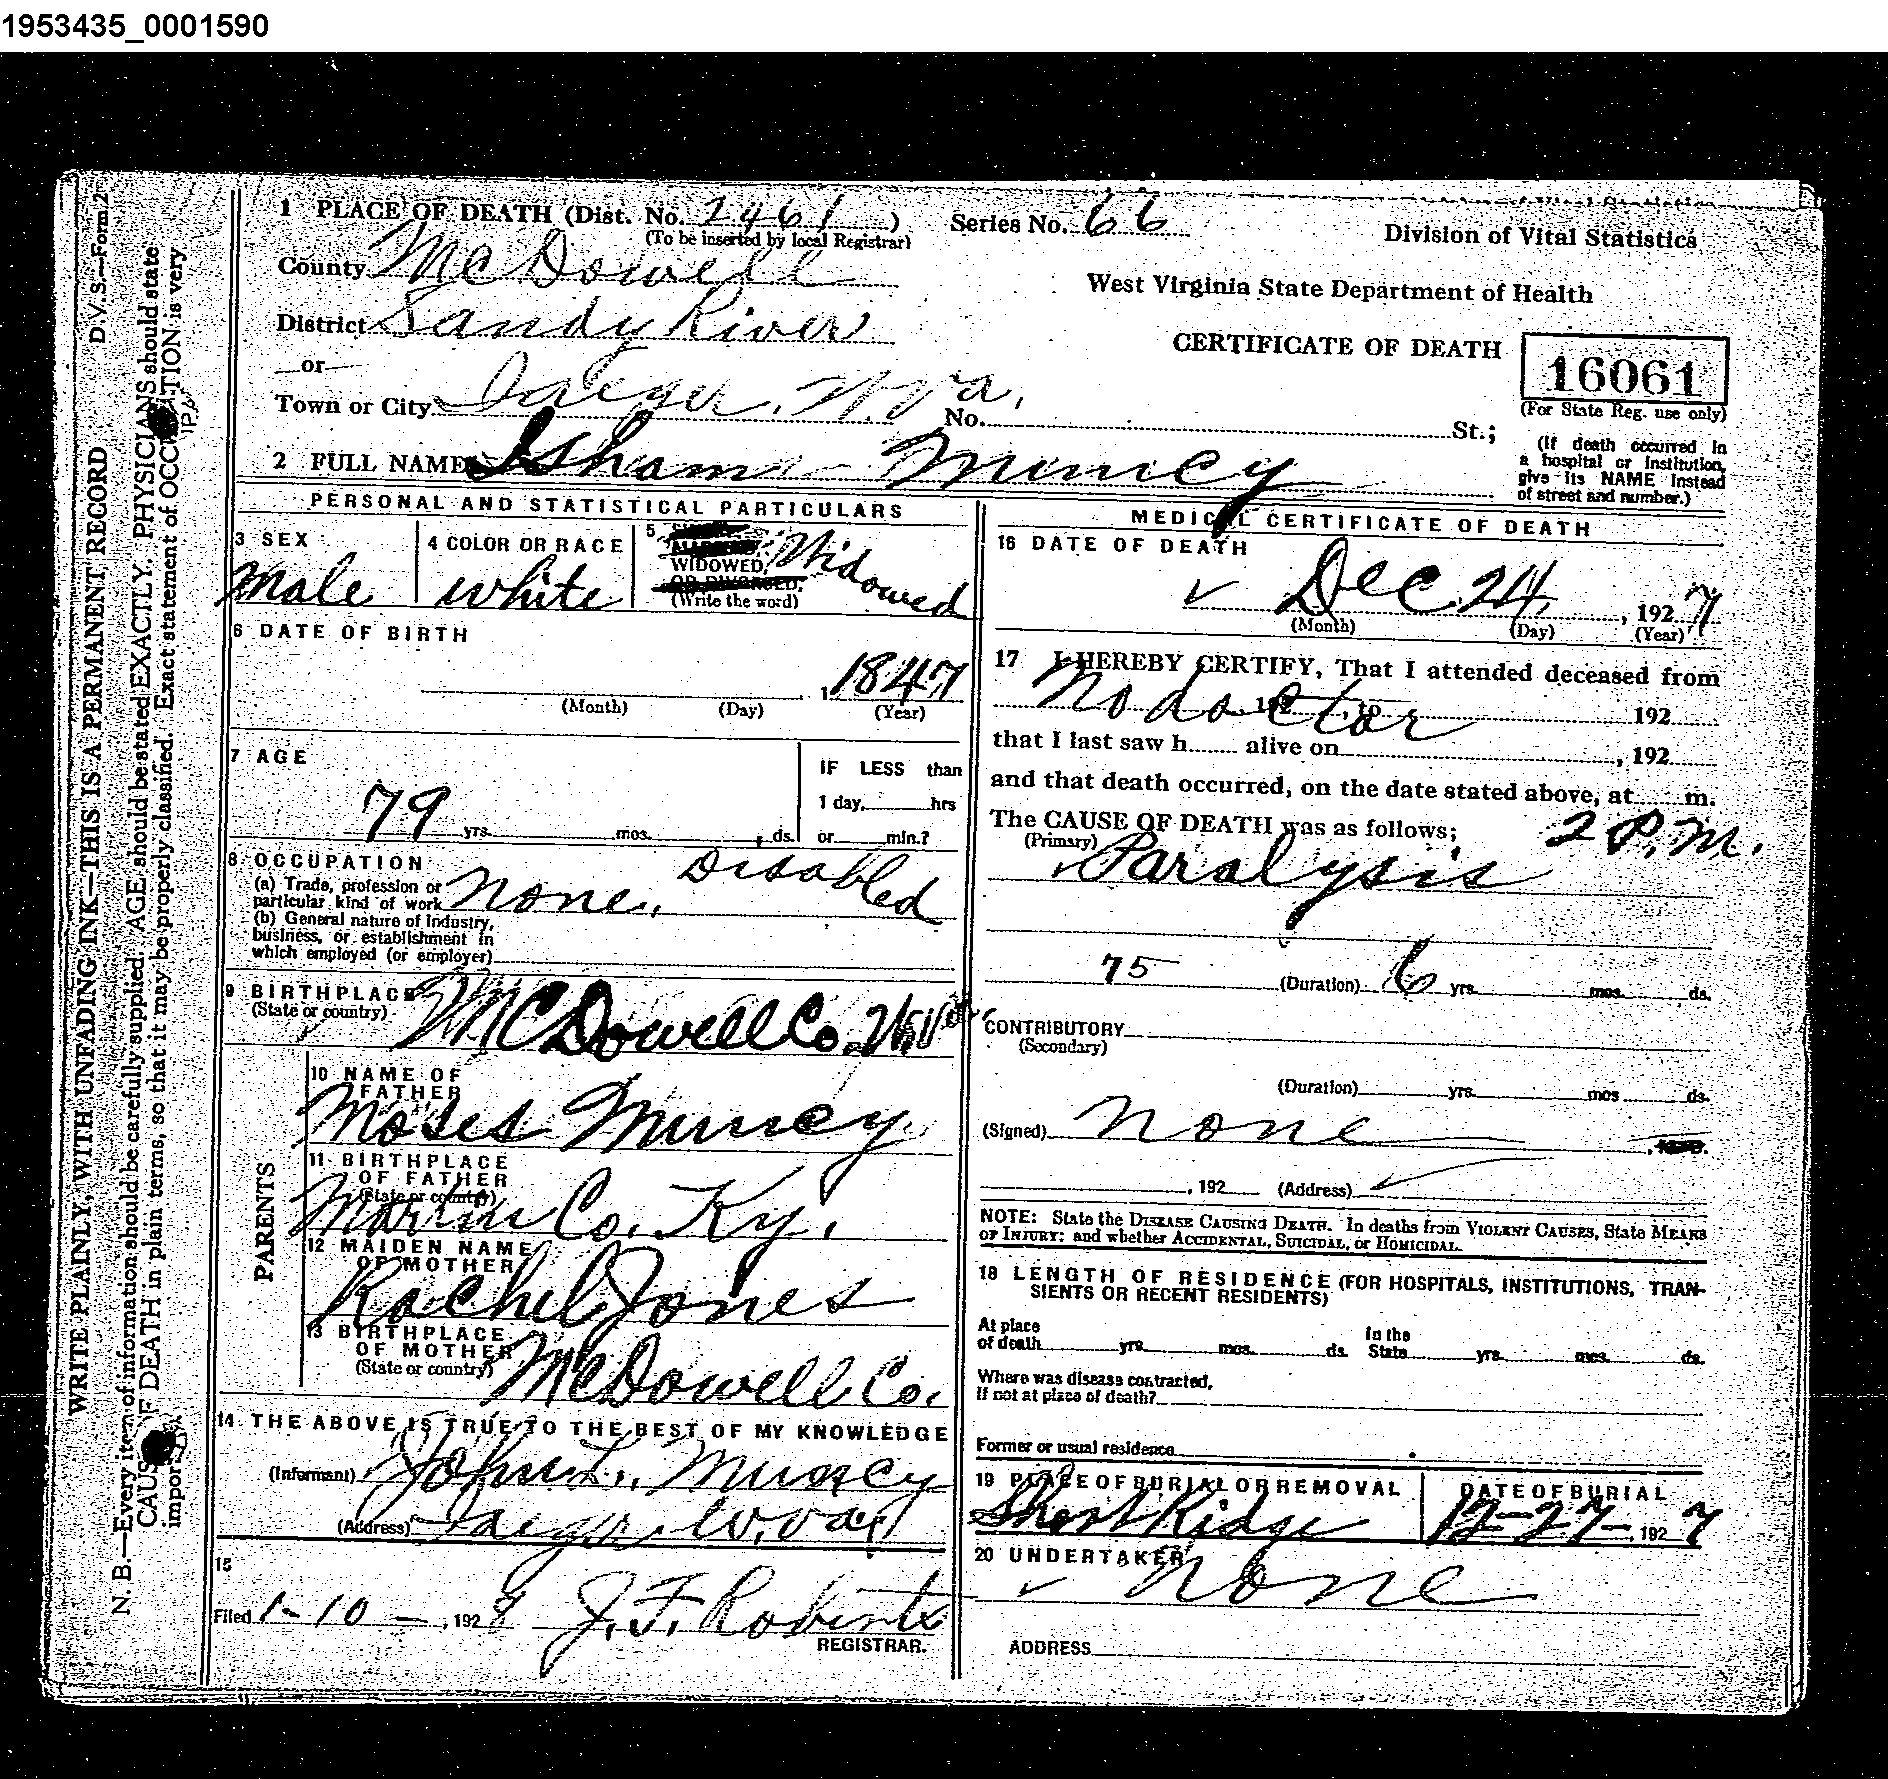 1953435_0001590
1 PLACE OF DEATH (Dist. No. 2461 ) Series No. 66
(To be inserted by local Registrar)
Division of Vital Statistics
County McDowell
West Virginia State Department of Health
District Sandy River
CERTIFICATE OF DEATH
16061
(For State Reg. use only)
or
Town or City Iaeger, W. Va. No. St.;
(If death occurred in
a hospital or institution,
give its NAME instead
of street and number.)
2 FULL NAME Isham Muncy
PERSONAL AND STATISTICAL PARTICULARS
3 SEX
Male
4 COLOR OR RACE
white
5
WIDOWED,
OR DIVORCED,
(Write the word)
Widowed
6 DATE OF BIRTH
1847
(Month) (Day) (Year)
7 AGE
79 yrs. mos. ds.
IF LESS than
1 day, hrs
or min.?
8 OCCUPATION
(a) Trade, profession or
particular kind of work None. Disabled
(b) General nature of industry,
business, or establishment in
which employed (or employer)
9 BIRTHPLACE
(State or country) McDowell Co. W. Va.
PARENTS
10 NAME OF
FATHER
Moses Muncy
11 BIRTHPLACE
OF FATHER
(State or country)
Martin Co. Ky.
12 MAIDEN NAME
OF MOTHER
Rachel Jones
13 BIRTHPLACE
OF MOTHER
(State or country) McDowell Co.
14 THE ABOVE IS TRUE TO THE BEST OF MY KNOWLEDGE
(Informant) John L. Muncy
(Address) Iaeger W. Va
15
Filed 1-10- , 192 8 J. F. Roberts
REGISTRAR.
MEDICAL CERTIFICATE OF DEATH
16 DATE OF DEATH
Dec. 24, , 192 7
(Month) (Day) (Year)
17 I HEREBY CERTIFY, That I attended deceased from
No doctor 192 , to 192
that I last saw h alive on , 192
and that death occurred, on the date stated above, at m.
The CAUSE OF DEATH was as follows; 2 P.M.
(Primary)
Paralysis
75 (Duration) 6 yrs. mos. ds.
CONTRIBUTORY
(Secondary)
(Duration) yrs. mos ds.
(Signed) None
, 192 (Address)
NOTE: State the DISEASE CAUSING DEATH. In deaths from VIOLENT CAUSES, State MEANS
OF INJURY; and whether ACCIDENTAL, SUICIDAL, or HOMICIDAL.
18 LENGTH OF RESIDENCE (FOR HOSPITALS, INSTITUTIONS, TRAN-
SIENTS OR RECENT RESIDENTS)
At place
of death yrs. mos. ds. In the
State yrs. mos. ds.
Where was disease contracted,
If not at place of death?
Former or usual residence
19 PLACE OF BURIAL OR REMOVAL
Short Ridge
DATE OF BURIAL
12-27- , 192 7
20 UNDERTAKER
None
ADDRESS
D. V. S.—Form 2
WRITE PLAINLY, WITH UNFADING INK—THIS IS A PERMANENT RECORD
N. B.—Every item of information should be carefully supplied. AGE should be stated EXACTLY. PHYSICIANS should state
CAUSE OF DEATH in plain terms, so that it may be properly classified. Exact statement of OCCUPATION is very